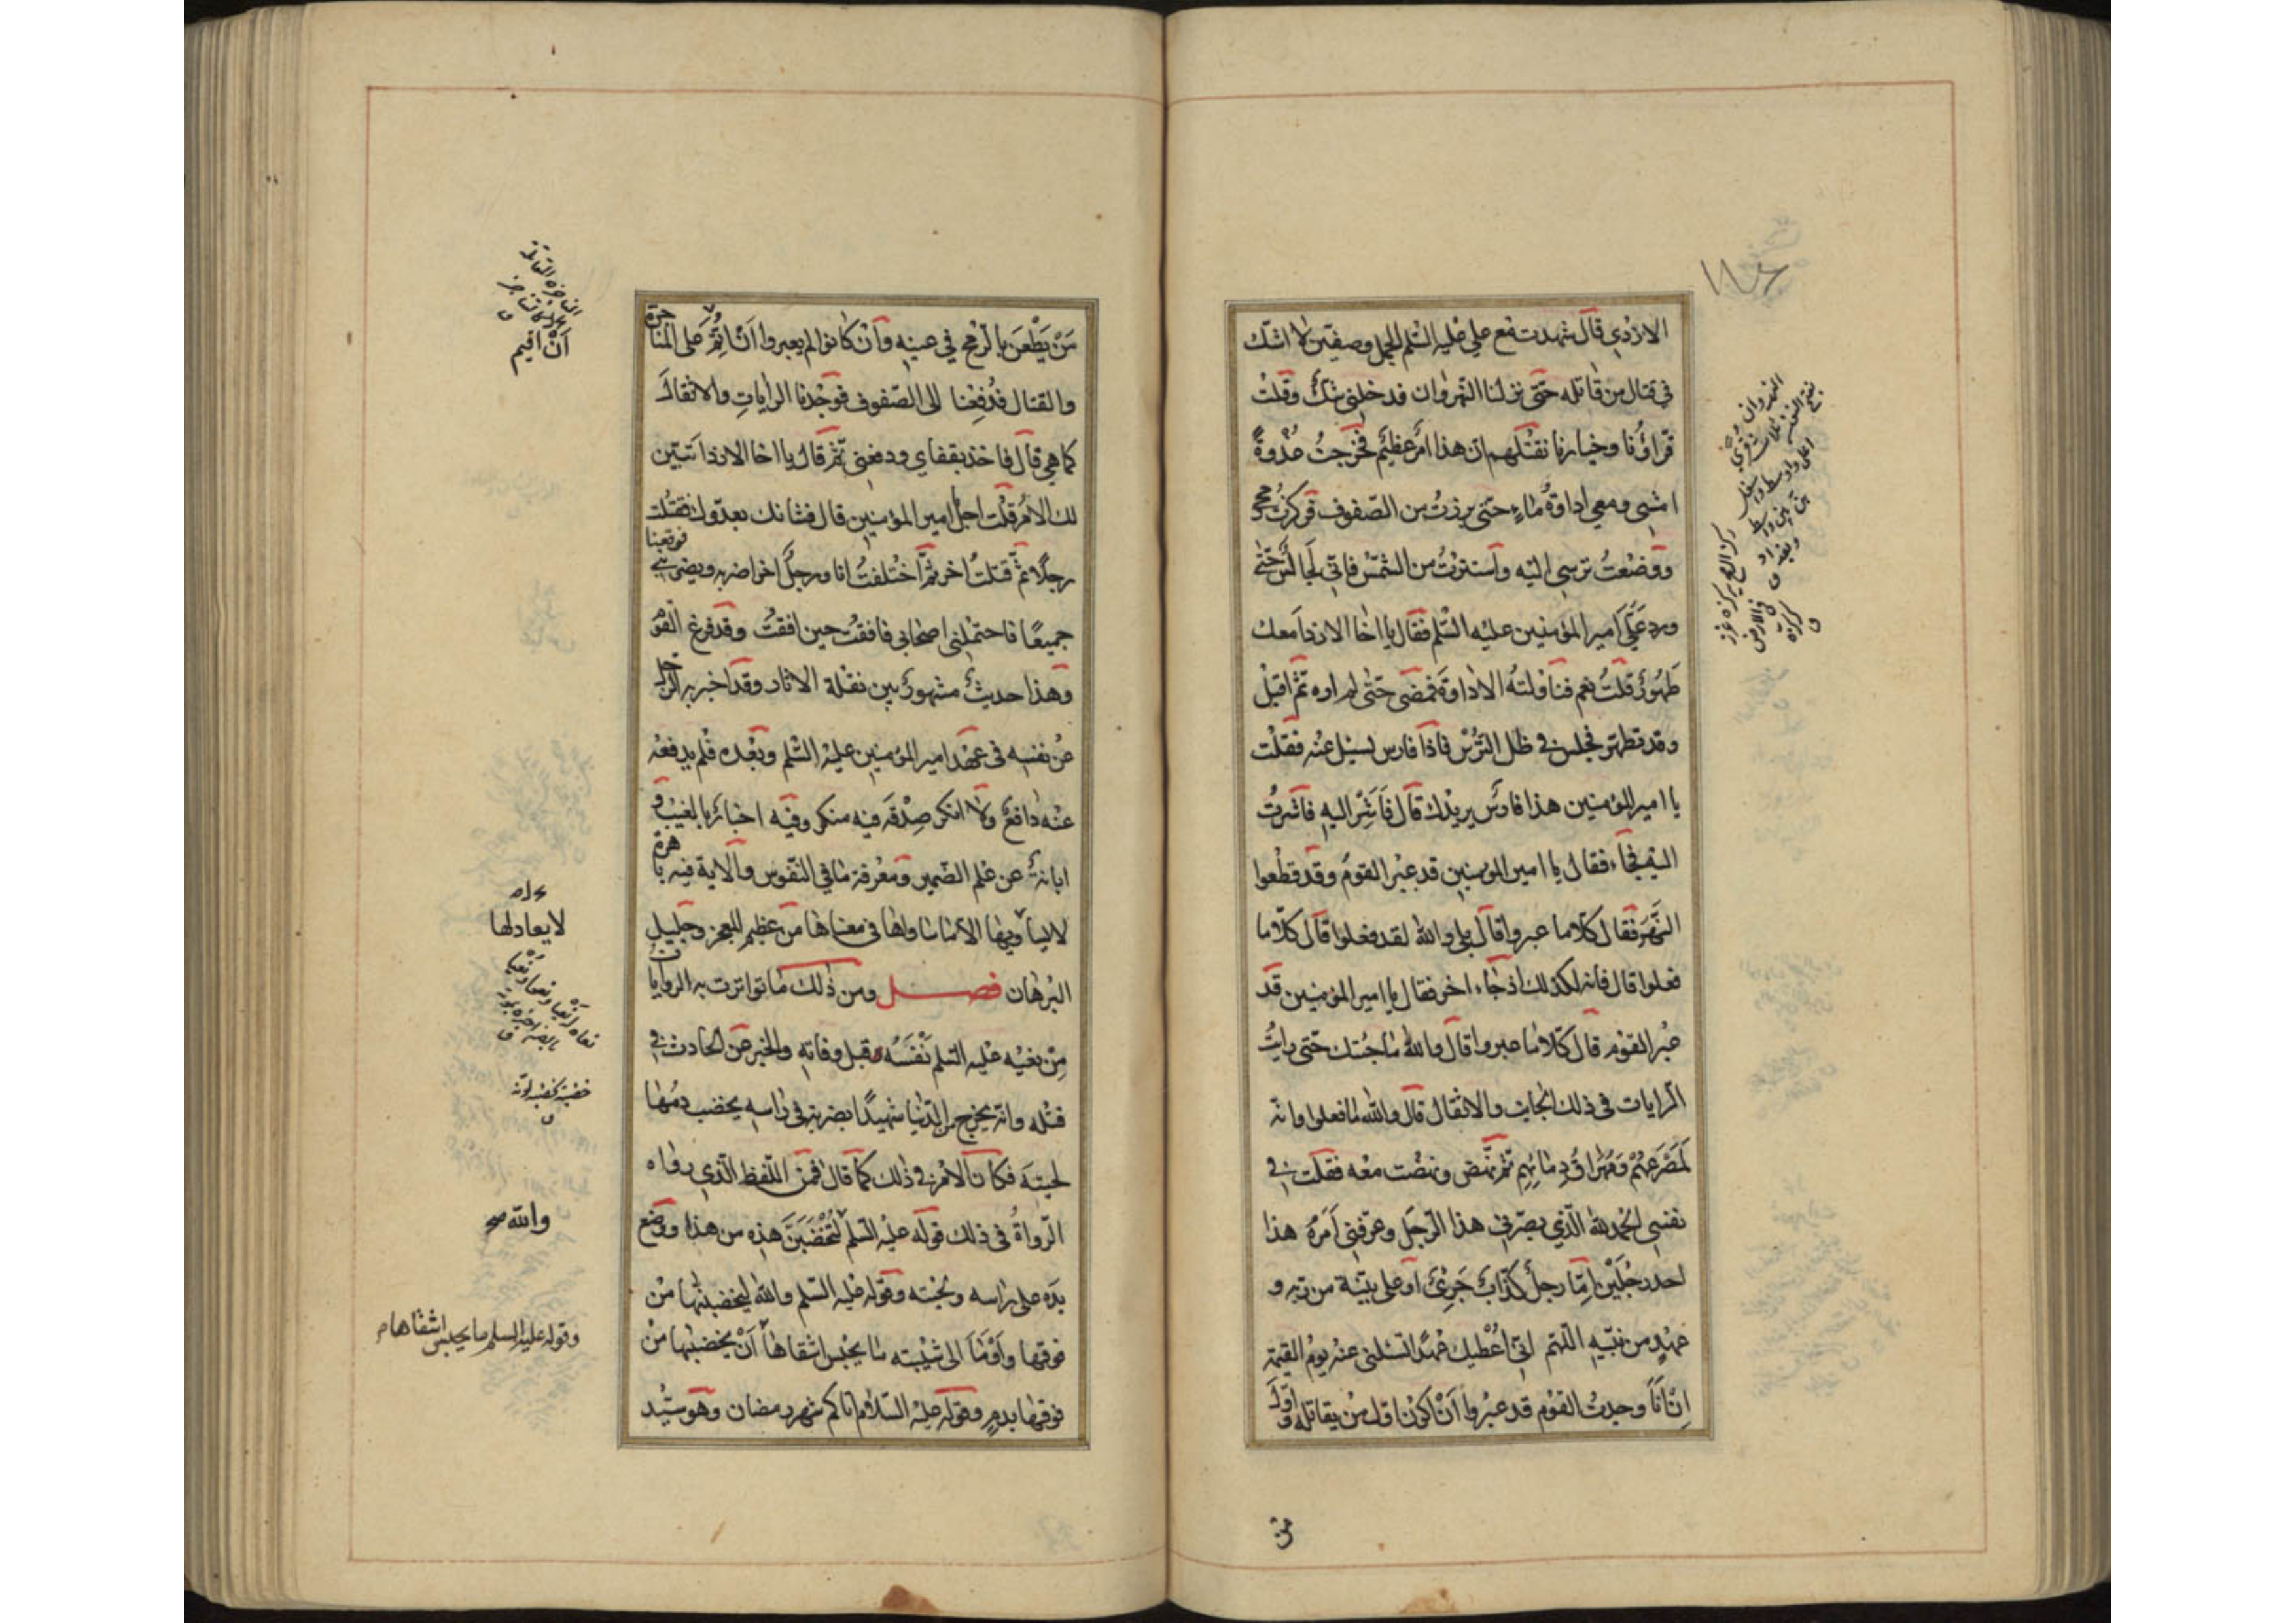 الازدي قال شهدت مع علي عليه السلم الجمل وصفين لا اشك
في قتال من قاتله حتى نزلنا النهروان فدخلني شك وقلت
قراؤنا وخيارنا نقتلهم ان هذا امر عظيم فخرجت غدوة
امشي ومعي اداوة ماء حتى برزت من الصفوف فركزت رمحي
ووضعت ترسي اليه واستترت من الشمس فاني لجالس حتى
ورد علي امير المؤمنين عليه السلم فقال يا اخا الازد امعك
طهور قلت نعم فناولته الاداوة فمضى حتى لم اره ثم اقبل
وقد تطهر فجلس في ظل الترس فاذا فارس يسئل عنه فقلت
يا امير المؤمنين هذا فارس يريدك قال فاشر اليه فاشرت
اليه فجاء فقال يا امير المؤمنين قد عبر القوم وقد قطعوا
النهر فقال كلا ما عبروا قال بلى والله لقد فعلوا قال كلا ما
فعلوا قال فانه لكذلك اذ جاء اخر فقال يا امير المؤمنين قد
عبر القوم قال كلا ما عبروا قال والله ما جئتك حتى رايت
الرايات في ذلك الجانب والاثقال قال والله ما فعلوا وانه
لمصرعهم ومهراق دمائهم ثم نهض ونهضت معه فقلت في
نفسي الحمد لله الذي بصرني هذا الرجل وعرفني امره هذا
احد رجلين اما رجل كذاب جرئ او على بينة من ربه و
عهد من نبيه اللهم اني اعطيك عهدا تسئلني عنه يوم القيمة
ان انا وجدت القوم قد عبروا ان اكون اول من يقاتله واول
من
من يطعن بالرمح في عينه وان كانوا لم يعبروا ان اتم على المناجزة
والقتال فدفعنا الى الصفوف فوجدنا الرايات والاثقال
كما هي قال فاخذ بقفاي ودفعني ثم قال يا اخا الازد اتبين
لك الامر قلت اجل يا امير المؤمنين قال فشانك بعدوك فقتلت
رجلا ثم قتلت اخر ثم اختلفت انا ورجل اخر اضربه ويضربني فوقعنا
جميعا فاحتملني اصحابي فافقت حين افقت وقد فرغ القوم
وهذا حديث مشهور بين نقلة الاثار وقد اخبر به الرجل
عن نفسه في عهد امير المؤمنين عليه السلم وبعده فلم يدفعه
عنه دافع ولا انكر صدقه فيه منكر وفيه اخبار بالغيب و
ابانة عن علم الضمير ومعرفة ما في النفوس والاية فيه باهرة
لا يساويها الا ما ساواها في معناها من عظيم المعجز وجليل
البرهان فصل ومن ذلك ما تواترت به الروايات
من نعيه عليه السلم نفسه قبل وفاته والخبر عن الحادث في
قتله وانه يخرج من الدنيا شهيدا بضربة في راسه يخضب دمها
لحيته فكان الامر في ذلك كما قال فمن اللفظ الذي رواه
الرواة في ذلك قوله عليه السلم لتخضبن هذه من هذا ووضع
يده على راسه ولحيته وقوله عليه السلم والله ليخضبنها من
فوقها واومأ الى شيبته ما يحبس اشقاها ان يخضبها من
فوقها بدم وقوله عليه السلام اتاكم شهر رمضان وهو سيد
ان اقيم
لا يعادلها
والله صح
وقوله عليه السلم ما يحبس اشقاها